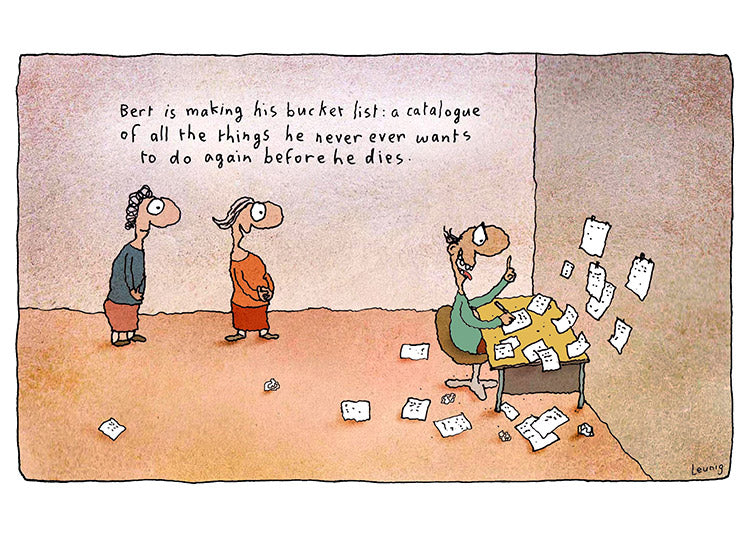 Bert is making his bucket list: a catalogue
of all the things he never ever wants
to do again before he dies.
Leunig